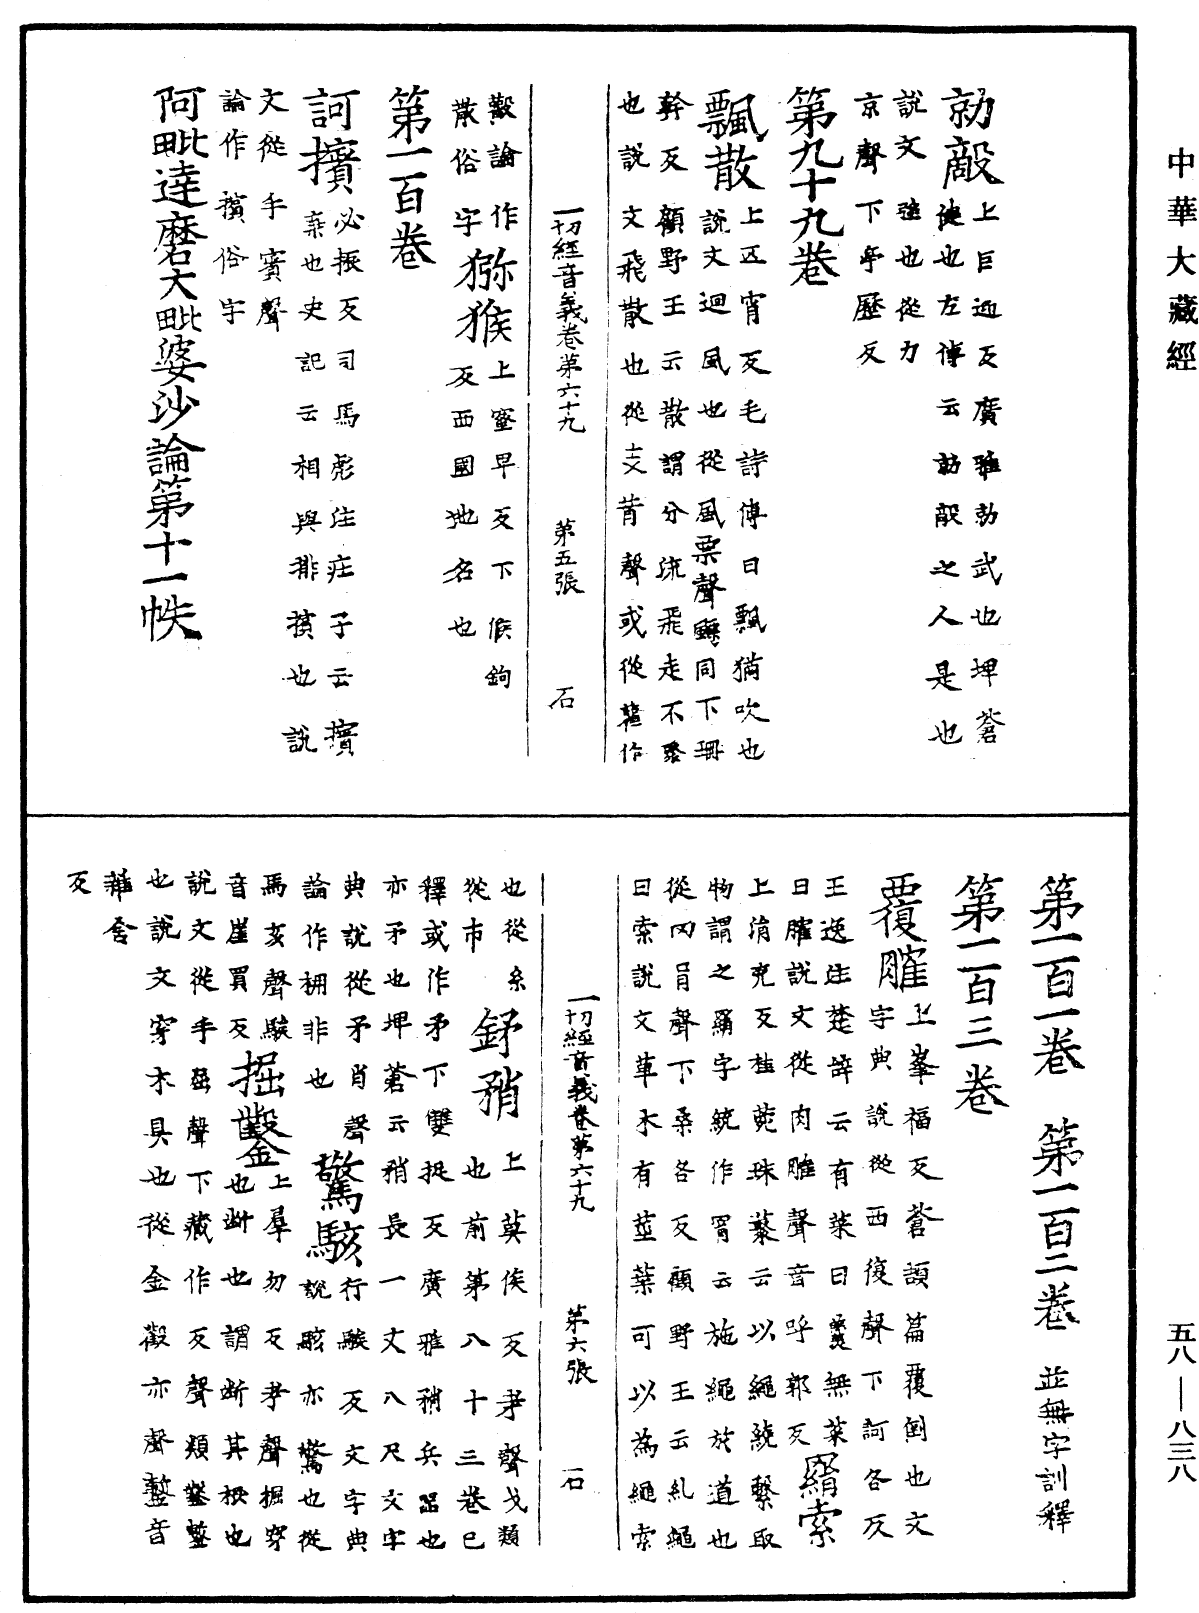 中華大藏經
勍敵
上巨迎反廣雅勍武也埤蒼
健也左傳云勍敵之人是也
說文彊也從力
京聲下亭歷反
第九十九卷
飄散
上匹宵反毛詩傳曰飄猶吹也
說文迴風也從風票聲同下珊
幹反顧野王云散謂分流飛走不聚
也說文飛散也從攴昔聲或從作
一切經音義卷第六十九 第五張 石
論作
散俗字
獼猴
上蜜卑反下候鉤
反西國地名也
第一百卷
訶擯
必振反司馬彪注莊子云擯
棄也史記云相與排擯也說
文從手賓聲
論作擯俗字
阿毗達磨大毗婆沙論第十一帙
第一百一卷 第一百二卷 並無字訓釋
第一百三卷
覆臛
上峯福反蒼頡篇覆倒也文
字典說從西復聲下訶各反
王逸注楚辭云有菜曰羹無菜
曰臛說文從肉隺聲音呼郭反
羂索
上涓兗反桂苑珠叢云以繩繞繫取
物謂之羂字統作罥云施繩於道也
從罓肙聲下桑各反顧野王云糺繩
曰索說文草木有莖葉可以為繩索
一切經音義卷第六十九 第六張 石
也從糸
從市
鉾矟
上莫侯反矛聲戈類
也前第八十三卷已
釋或作矛下雙捉反廣雅矟兵器也
亦矛也埤蒼云矟長一丈八尺文字
典說從矛肖聲
論作棚非也
驚駭
行駭反文字典
說駭亦驚也從
馬亥聲駭
音崖買反
掘鑿
上羣勿反考聲掘穿
也斷也謂斷其根也
說文從手屈聲下藏作反聲類鑿鏨
也說文穿木具也從金㲉亦聲鏨音
雜含
反
五八—八三八